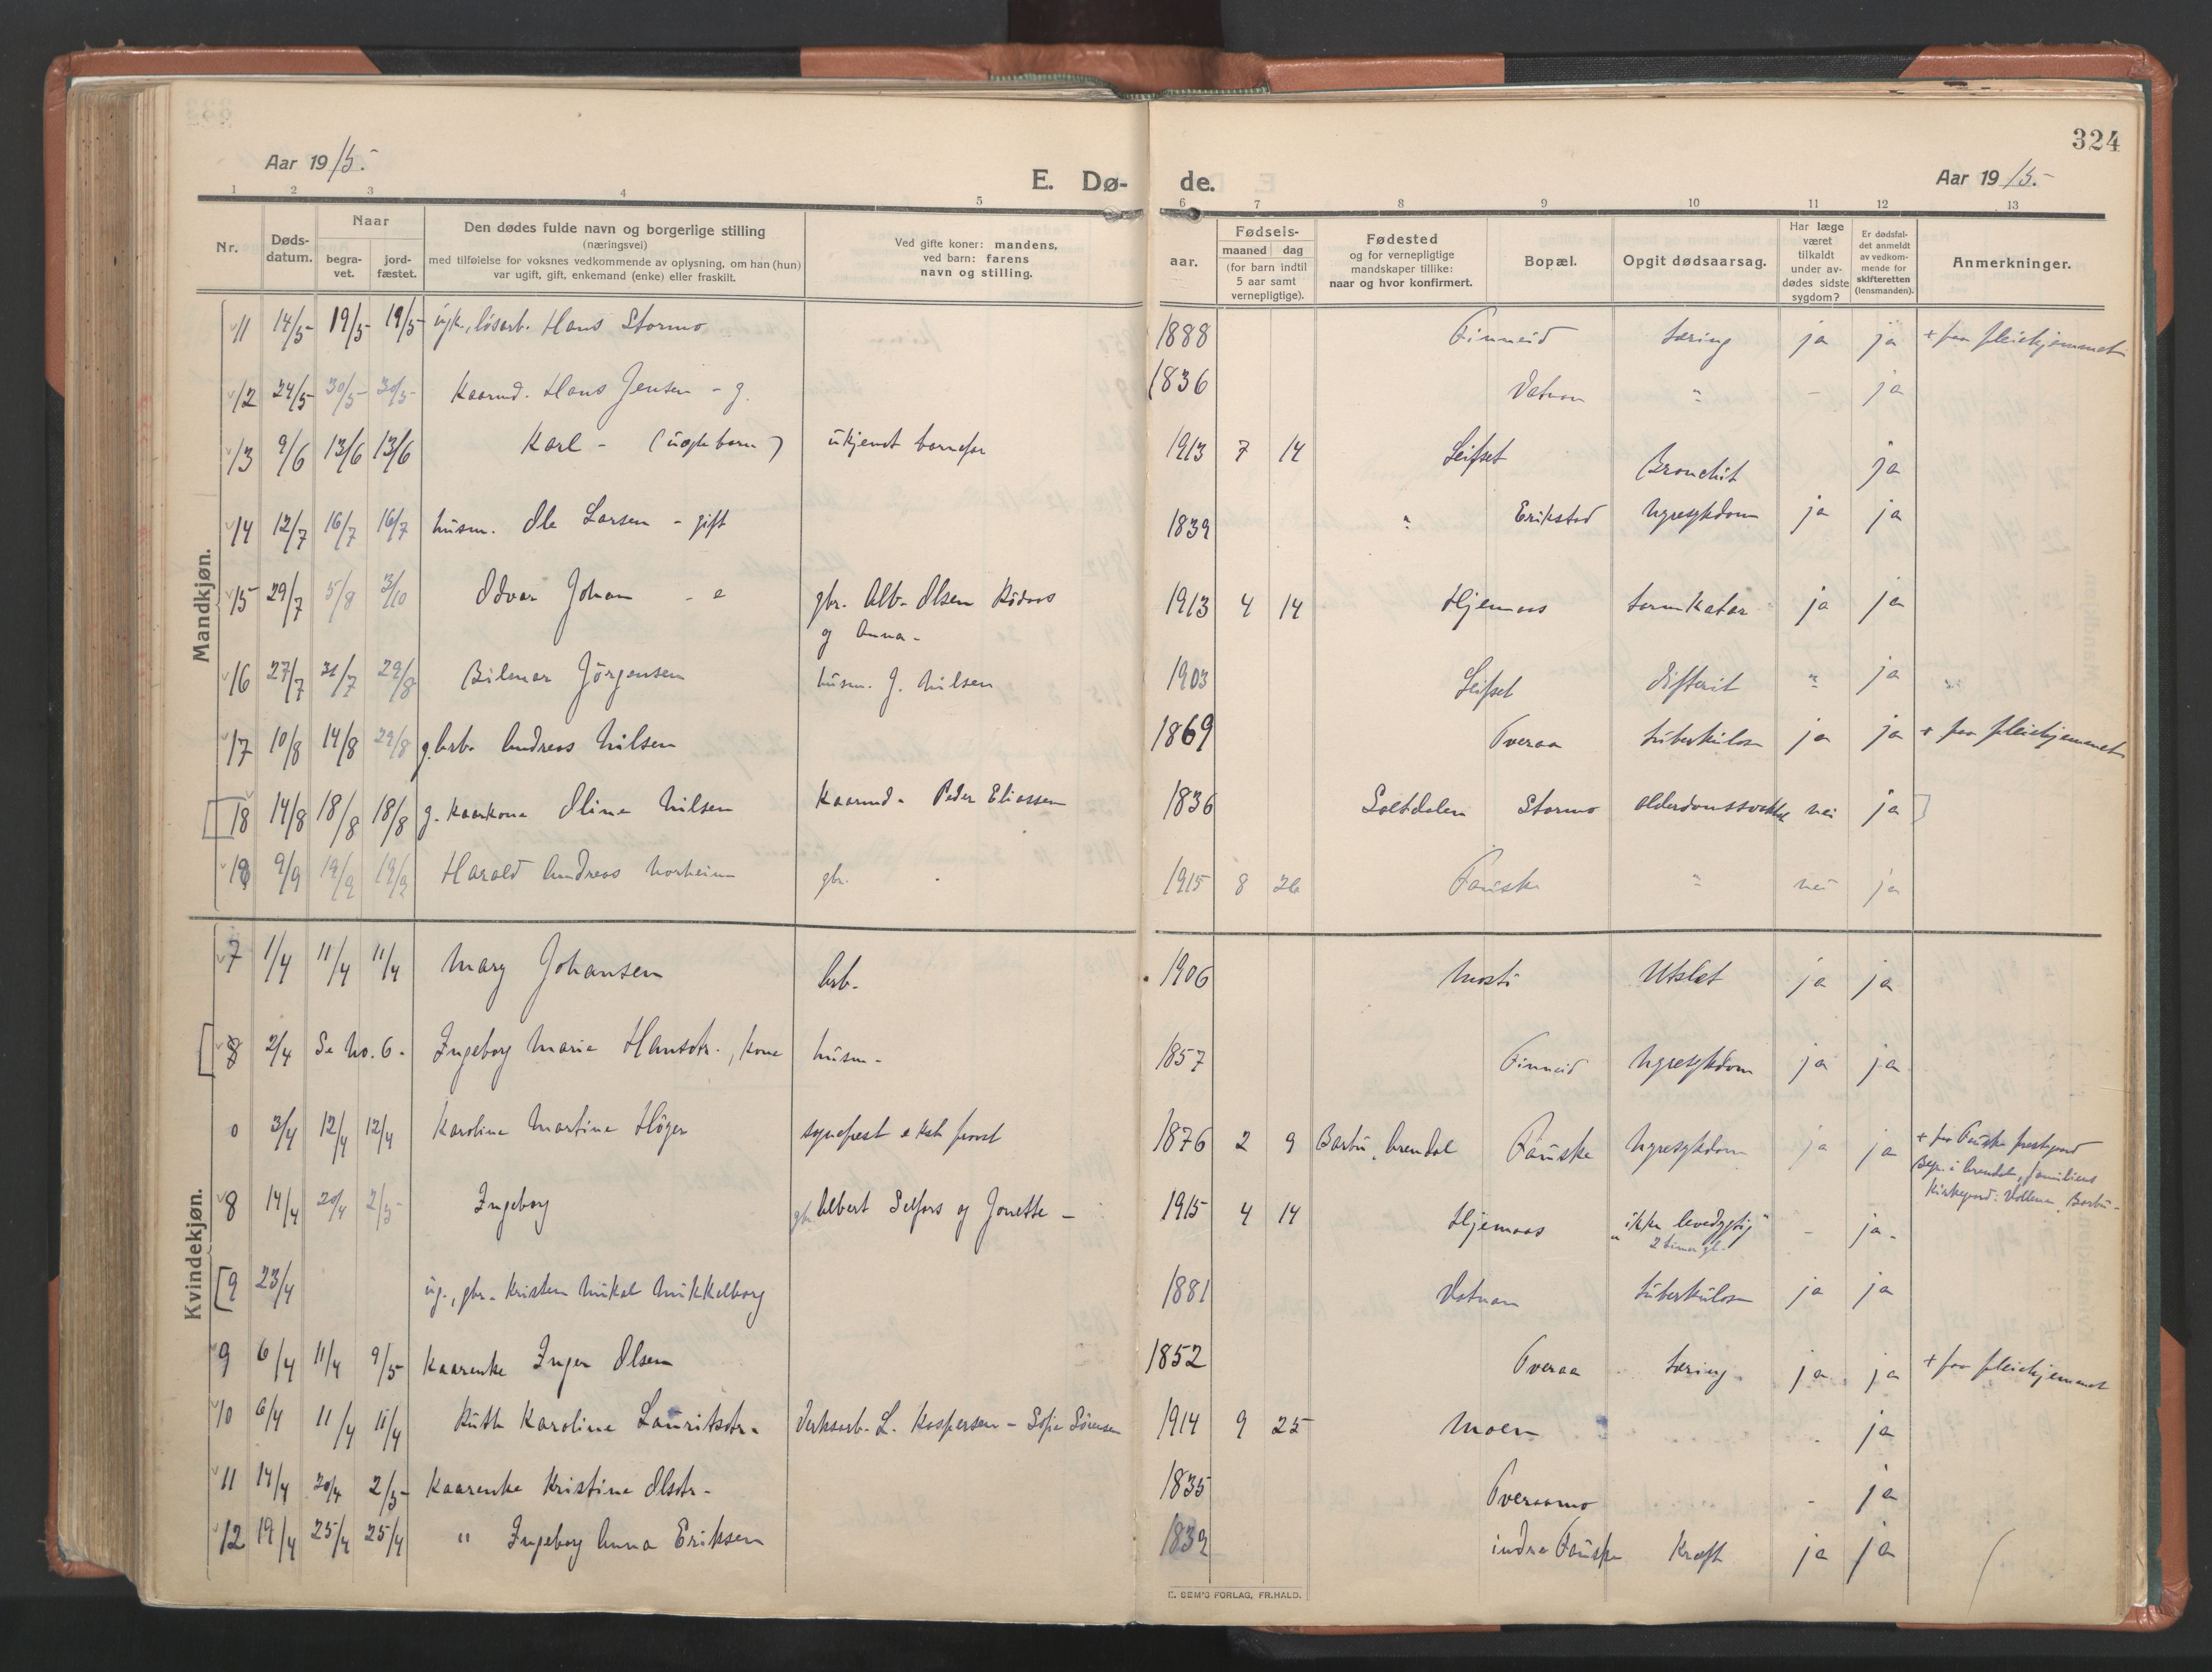 324
Aar 1915.
E. Dø-
de.
Aar 1915.
1 2 3 4 5 6 7 8 9 10 11 12 13
Nr.
Døds-
datum.
Naar
begra-
vet.
jord-
fæstet.
Den dødes fulde navn og borgerlige stilling
(næringsvei)
med tilføielse for voksnes vedkommende av oplysning, om han (hun)
var ugift, gift, enkemand (enke) eller fraskilt.
Ved gifte koner: mandens,
ved barn: farens
navn og stilling.
Fødsels-
aar.
maaned dag
(for barn indtil
5 aar samt
vernepligtige).
Fødested
og for vernepligtige
mandskaper tillike:
naar og hvor konfirmert.
Bopæl.
Opgit dødsaarsag.
Har læge
været
tilkaldt
under av-
dødes sidste
sygdom?
Er dødsfal-
det anmeldt
av vedkom-
mende for
skifteretten
(lensmanden).
Anmerkninger.
Mandkjøn.
11 14/5 19/5 19/5 løsarb. Hans Stormo 1888 Finneid tæring ja ja + paa pleiehjemmet
12 24/5 30/5 30/5 Kaarmd. Hans Jensen - g. 1836 Vatnan " - ja
13 9/6 13/6 13/6 Karl - (uegte barn) ukjendt barnefar 1913 7 14 Leifset Bronchit ja
14 12/7 16/7 16/7 husm. Ole Larsen - gift 1839 " Erikstad Nyresykdom ja ja
15 29/7 5/8 3/10 Odvar Johan - e gbr. Alb. Olsen Rødaas
og Anna - 1913 4 14 Hjemaas tarmkatar ja ja
16 27/7 31/7 29/8 Bilmar Jørgensen husm. J. Nilsen 1903 Leifset difterit " ja
17 10/8 14/8 29/8 g. arb. Andreas Nilsen 1869 Tveraa tuberkulose ja ja + paa pleiehjemmet
18 14/8 18/8 18/8 g. kaarkone Oline Nilsen Kaarmd. Peder Eliassen 1836 Saltdalen Stormo alderdomssvakhet nei ja
19 9/9 19/9 19/9 Harald Andreas Norheim gbr. 1915 8 26 Fauske " nei ja
Kvindekjøn.
7 1/4 11/4 11/4 Mary Johansen Arb. 1906 Mosti Utslet ja ja
8 2/4 Se No. 6. Ingeborg Marie Hansdtr., kone husm. 1857 Finneid Nyresykdom ja ja
0 3/4 12/4 12/4 Karoline Martine Höyer sogneprest 1876 2 9 Barbu, Arendal Fauske Nyresykdom ja ja + paa Fauske prestegaard
Begr. i Arendal, familiens
kirkegaard: Vollene, Barbu -
8 14/4 20/4 2/5 Ingeborg gbr. Albert Selfors og Jonette - 1915 4 14 Hjemaas "ikke levedygtig"
2 timer gl. - ja.
9 23/4 ug., gbr. Kristen Mikal Mikkelborg 1881 Vatnan tuberkulose ja ja
9 6/4 11/4 9/5 Kaarenke Inger Olsen 1852 Tveraa tæring ja ja + paa pleiehjemmet
10 6/4 11/4 11/4 Ruth Karoline Lauritsdtr. Verksarb. L. Kaspersen - Sofie Sörensen 1914 9 25 Moen - ja
11 14/4 20/4 2/5 Kaarenke Kristine Olsdtr. 1835 Tveraamo - ja
12 19/4 25/4 25/4 " Ingeborg Anna Eriksen 1839 indre Fauske Kræft ja ja
E. SEM'S FORLAG, FR.HALD.